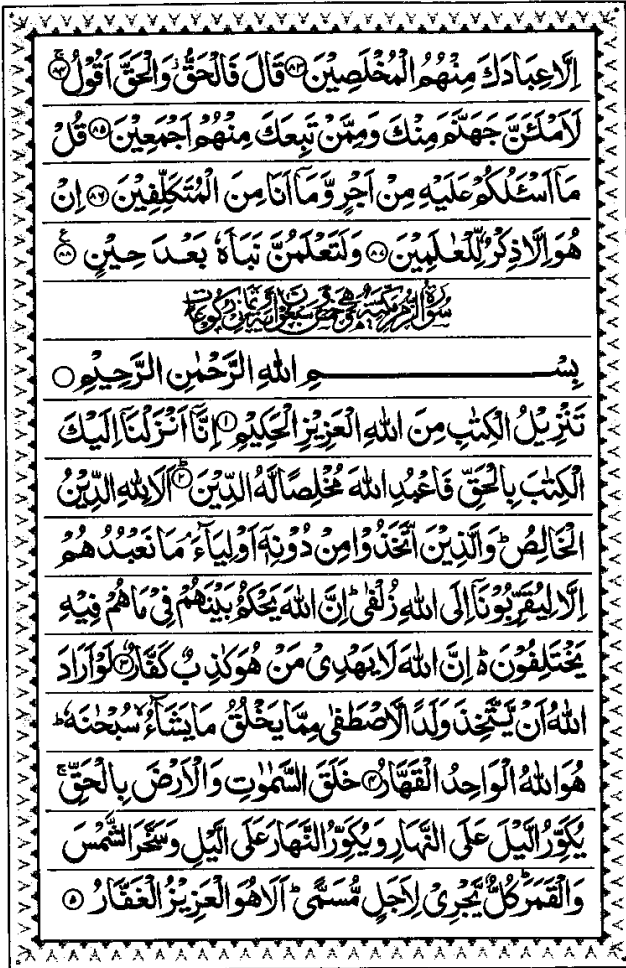 اِلَّا عِبَادَكَ مِنْهُمُ الْمُخْلَصِيْنَ ۝۸۳ قَالَ فَالْحَقُّ ؗ وَالْحَقَّ اَقُوْلُ ۝ۚ۸۴
لَاَمْلَـَٔنَّ جَهَنَّمَ مِنْكَ وَمِمَّنْ تَبِعَكَ مِنْهُمْ اَجْمَعِيْنَ ۝۸۵ قُلْ
مَاۤ اَسْـَٔلُكُمْ عَلَيْهِ مِنْ اَجْرٍ وَّمَاۤ اَنَا مِنَ الْمُتَكَلِّفِيْنَ ۝۸۶ اِنْ
هُوَ اِلَّا ذِكْرٌ لِّلْعٰلَمِيْنَ ۝۸۷ وَلَتَعْلَمُنَّ نَبَاَهٗ بَعْدَ حِيْنٍ ۝ࣖ۸۸
سُوْرَةُ الزُّمَرِ مَكِّيَّةٌ وَّهِيَ خَمْسٌ وَّسَبْعُوْنَ اٰيَةً وَّثَمَانِيْ رُكُوْعَاتٍ
بِسْمِ اللّٰهِ الرَّحْمٰنِ الرَّحِيْمِ ۝
تَنْزِيْلُ الْكِتٰبِ مِنَ اللّٰهِ الْعَزِيْزِ الْحَكِيْمِ ۝۱ اِنَّاۤ اَنْزَلْنَاۤ اِلَيْكَ
الْكِتٰبَ بِالْحَقِّ فَاعْبُدِ اللّٰهَ مُخْلِصًا لَّهُ الدِّيْنَ ۝ؕ۲ اَلَا لِلّٰهِ الدِّيْنُ
الْخَالِصُ ؕ وَالَّذِيْنَ اتَّخَذُوْا مِنْ دُوْنِهٖۤ اَوْلِيَآءَ ۘ مَا نَعْبُدُهُمْ
اِلَّا لِيُقَرِّبُوْنَاۤ اِلَى اللّٰهِ زُلْفٰى ؕ اِنَّ اللّٰهَ يَحْكُمُ بَيْنَهُمْ فِيْ مَا هُمْ فِيْهِ
يَخْتَلِفُوْنَ ؕ۬ اِنَّ اللّٰهَ لَا يَهْدِيْ مَنْ هُوَ كٰذِبٌ كَفَّارٌ ۝۳ لَوْ اَرَادَ
اللّٰهُ اَنْ يَّتَّخِذَ وَلَدًا لَّاصْطَفٰى مِمَّا يَخْلُقُ مَا يَشَآءُ ۙ سُبْحٰنَهٗ ؕ
هُوَ اللّٰهُ الْوَاحِدُ الْقَهَّارُ ۝۴ خَلَقَ السَّمٰوٰتِ وَالْاَرْضَ بِالْحَقِّ ۚ
يُكَوِّرُ الَّيْلَ عَلَى النَّهَارِ وَيُكَوِّرُ النَّهَارَ عَلَى الَّيْلِ وَسَخَّرَ الشَّمْسَ
وَالْقَمَرَ ؕ كُلٌّ يَّجْرِيْ لِاَجَلٍ مُّسَمًّى ؕ اَلَا هُوَ الْعَزِيْزُ الْغَفَّارُ ۝۵